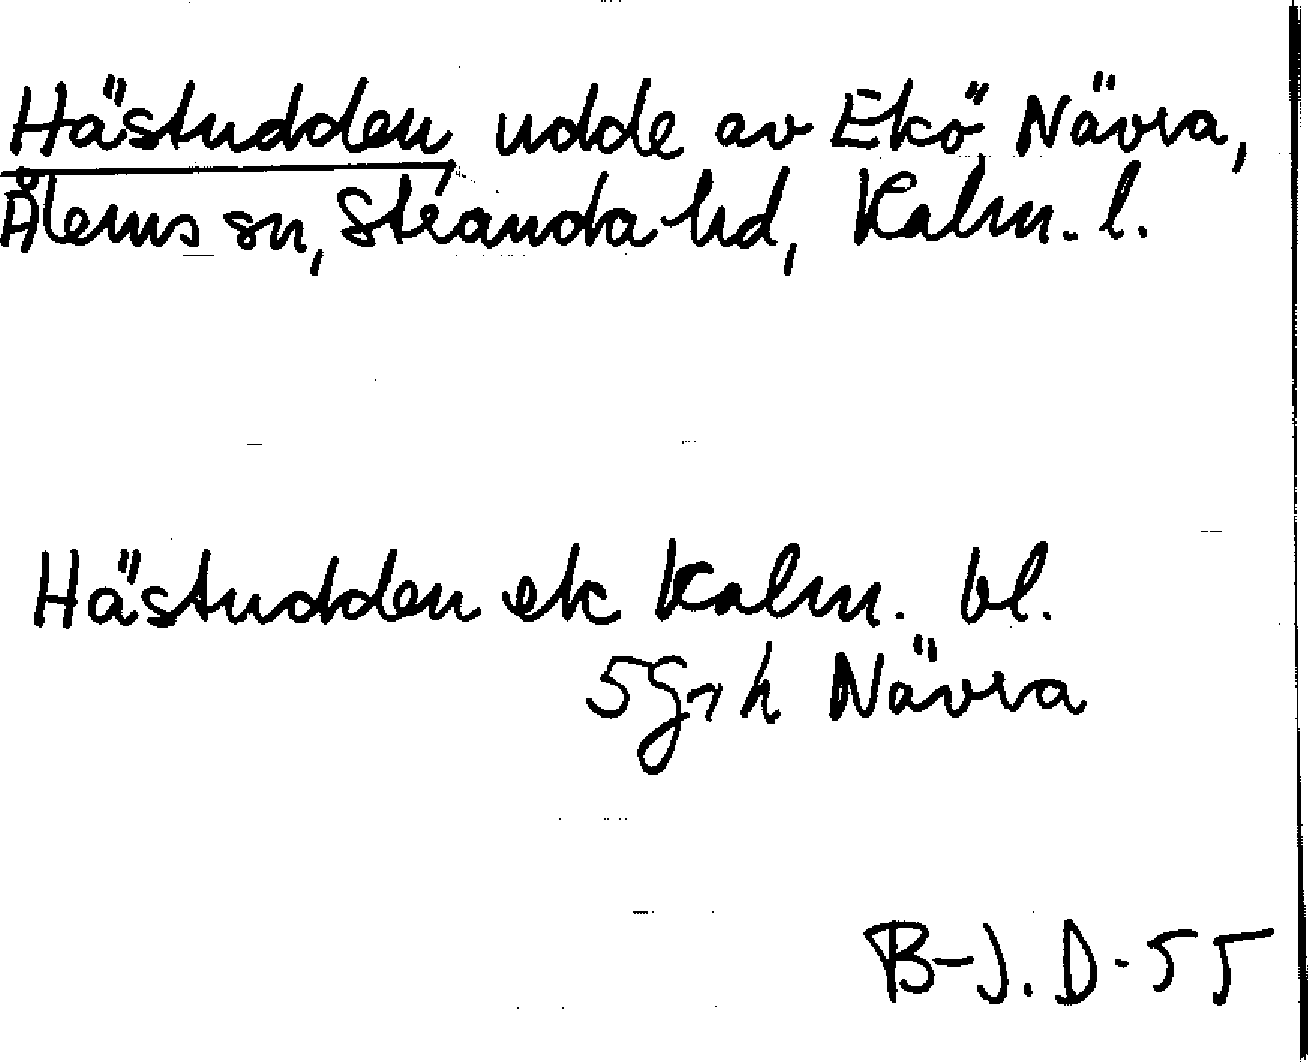 Hästudden, udde av Ekö Nävra,
Ålems sn, Stranda hd, Kalm. l.
Hästudden ek Kalm. bl.
5 g1h Nävra
B-J. D-55